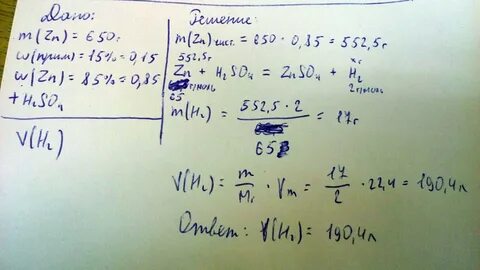 Дано:
m(Zn) = 650г
w(прим) = 15% = 0,15
w(Zn) = 85% = 0,85
+ H₂SO₄
V(H₂)
Решение:
m(Zn) чист. = 650 · 0,85 = 552,5г
552,5г xг
Zn + H₂SO₄ = ZnSO₄ + H₂
65 г/моль 2г/моль
m(H₂) = 552,5 · 2 / 65 = 17г
V(H₂) = m/Mr · Vm = 17/2 · 22,4 = 190,4л
Ответ: V(H₂) = 190,4л